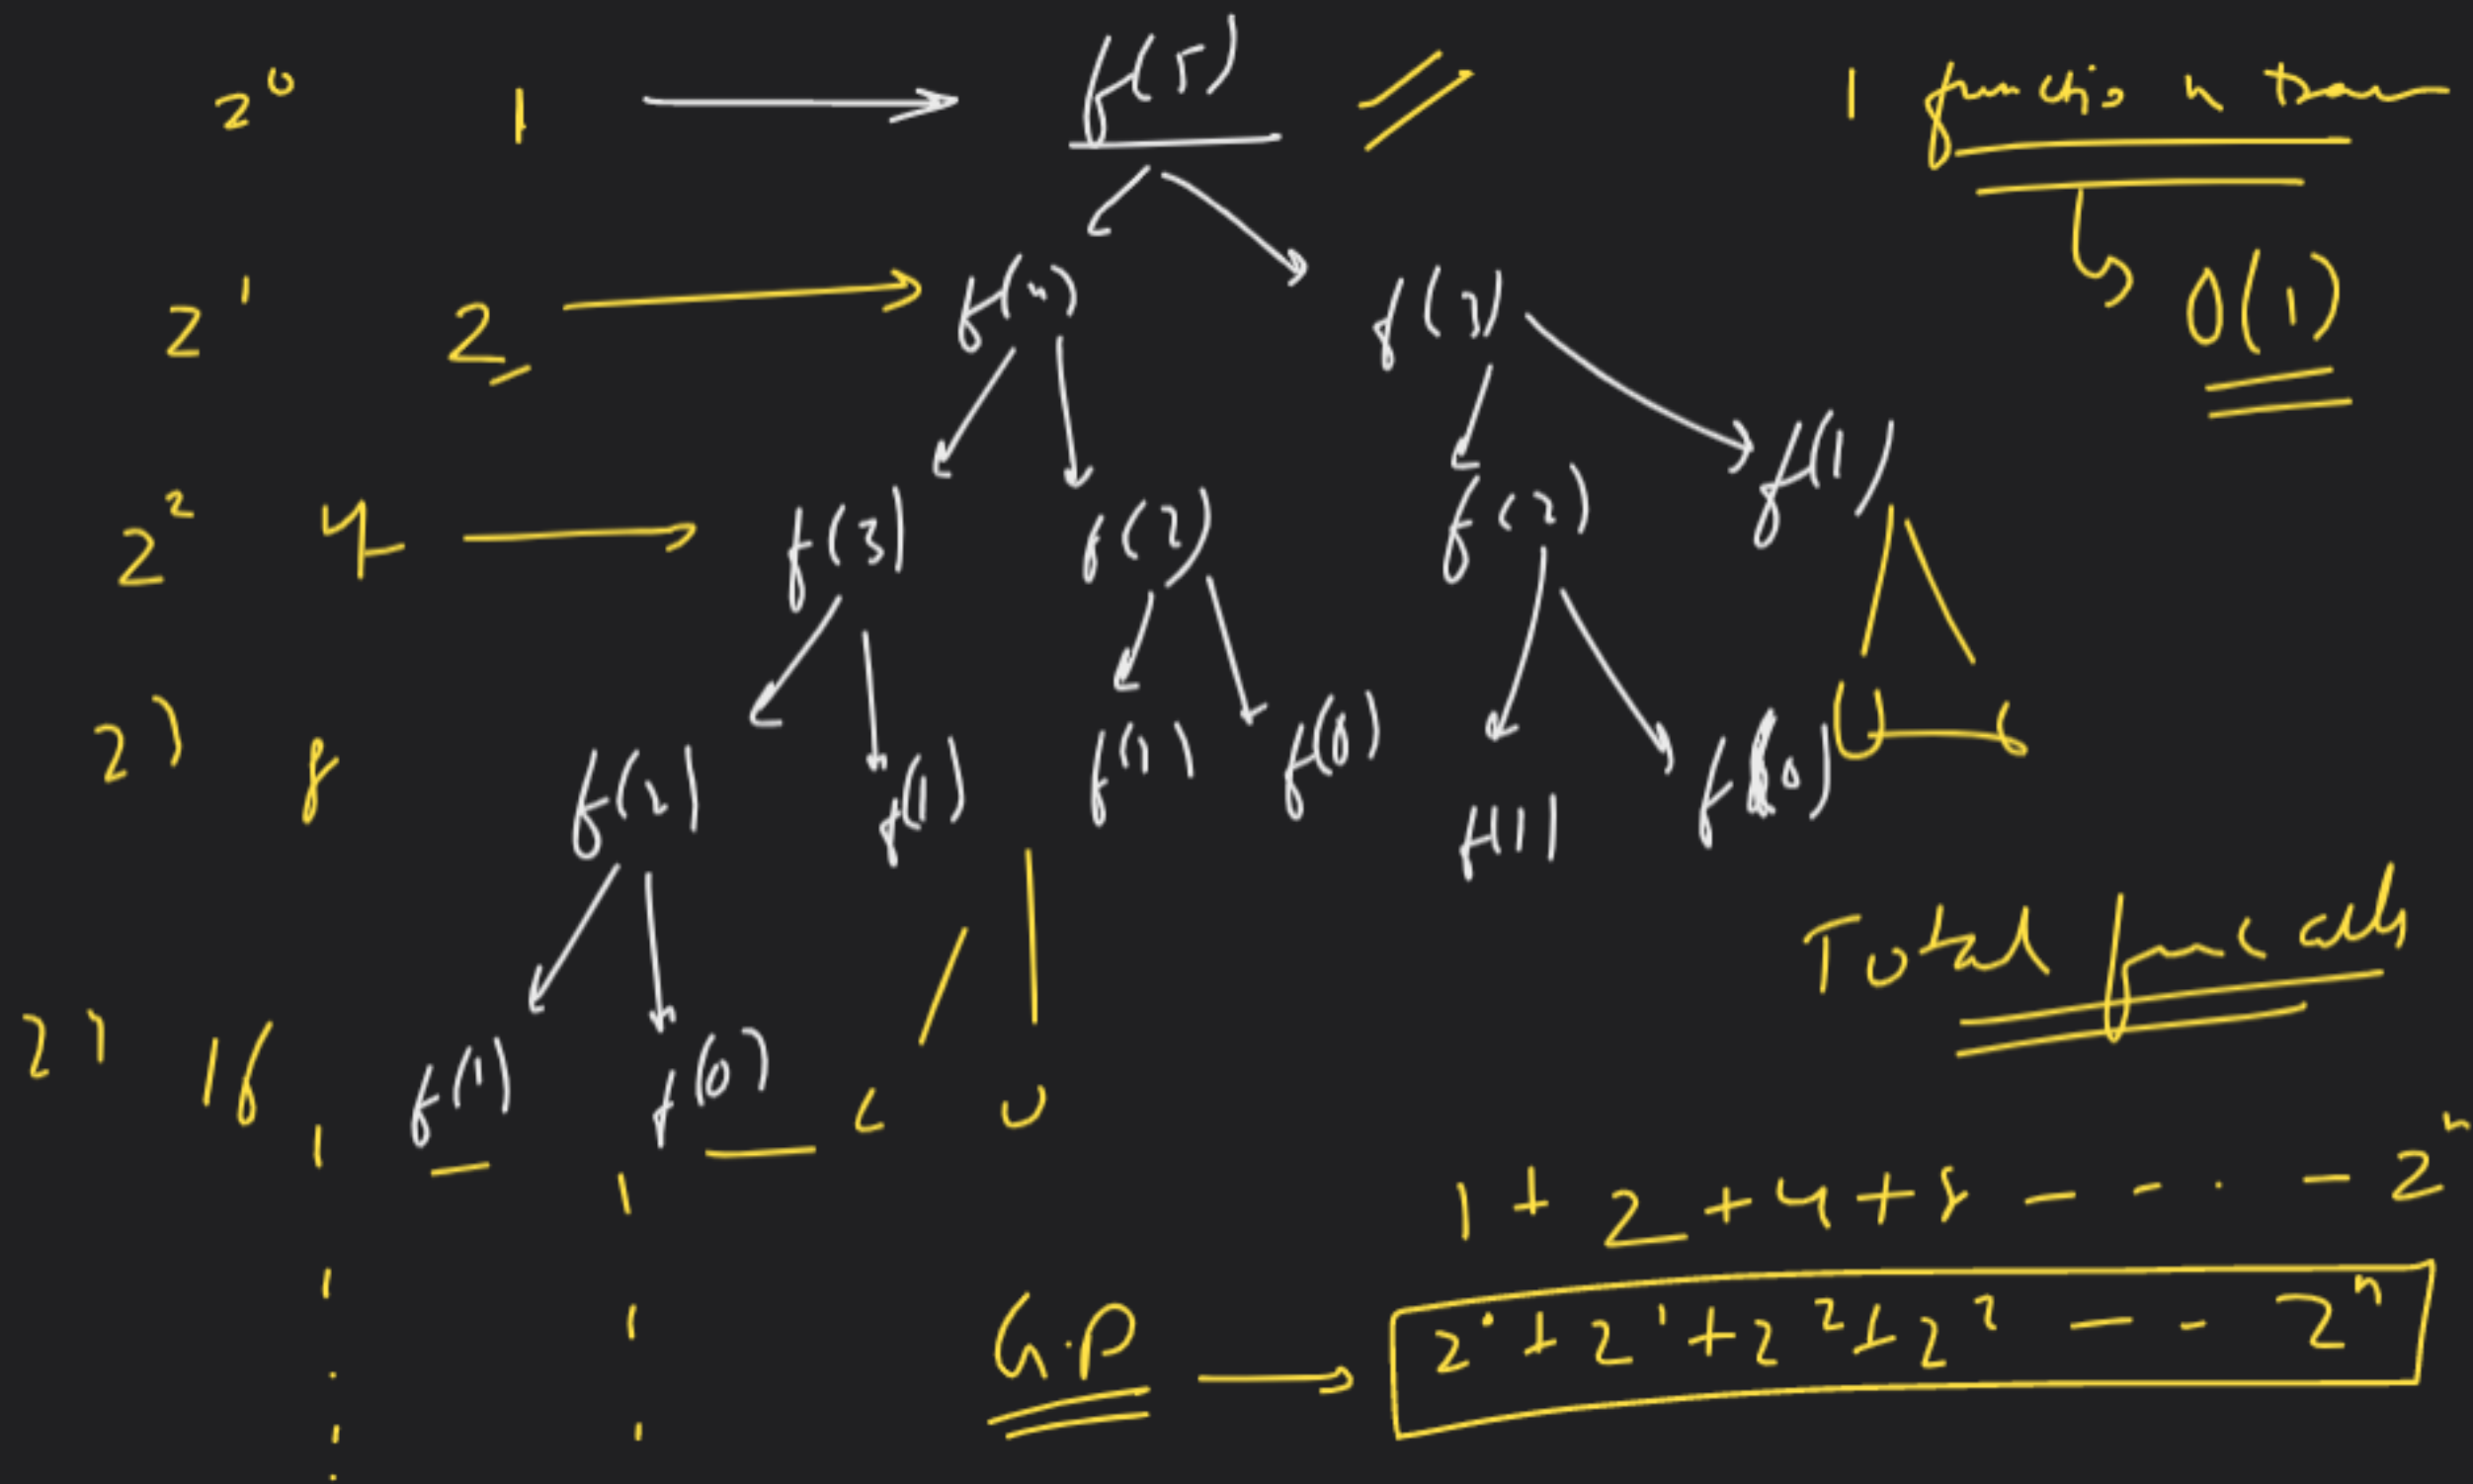 2⁰ 1 f(5) 1 function
O(1)
2¹ 2 f(4) f(3)
2² 4 f(3) f(2) f(2) f(1)
2³ 8 f(2) f(1) f(1) f(0) f(1) f(0)
Total func calls
2⁴ 16 f(1) f(0)
1 + 2 + 4 + 8 - - - - 2ⁿ
G.P 2⁰ + 2¹ + 2² + 2² - - 2ⁿ